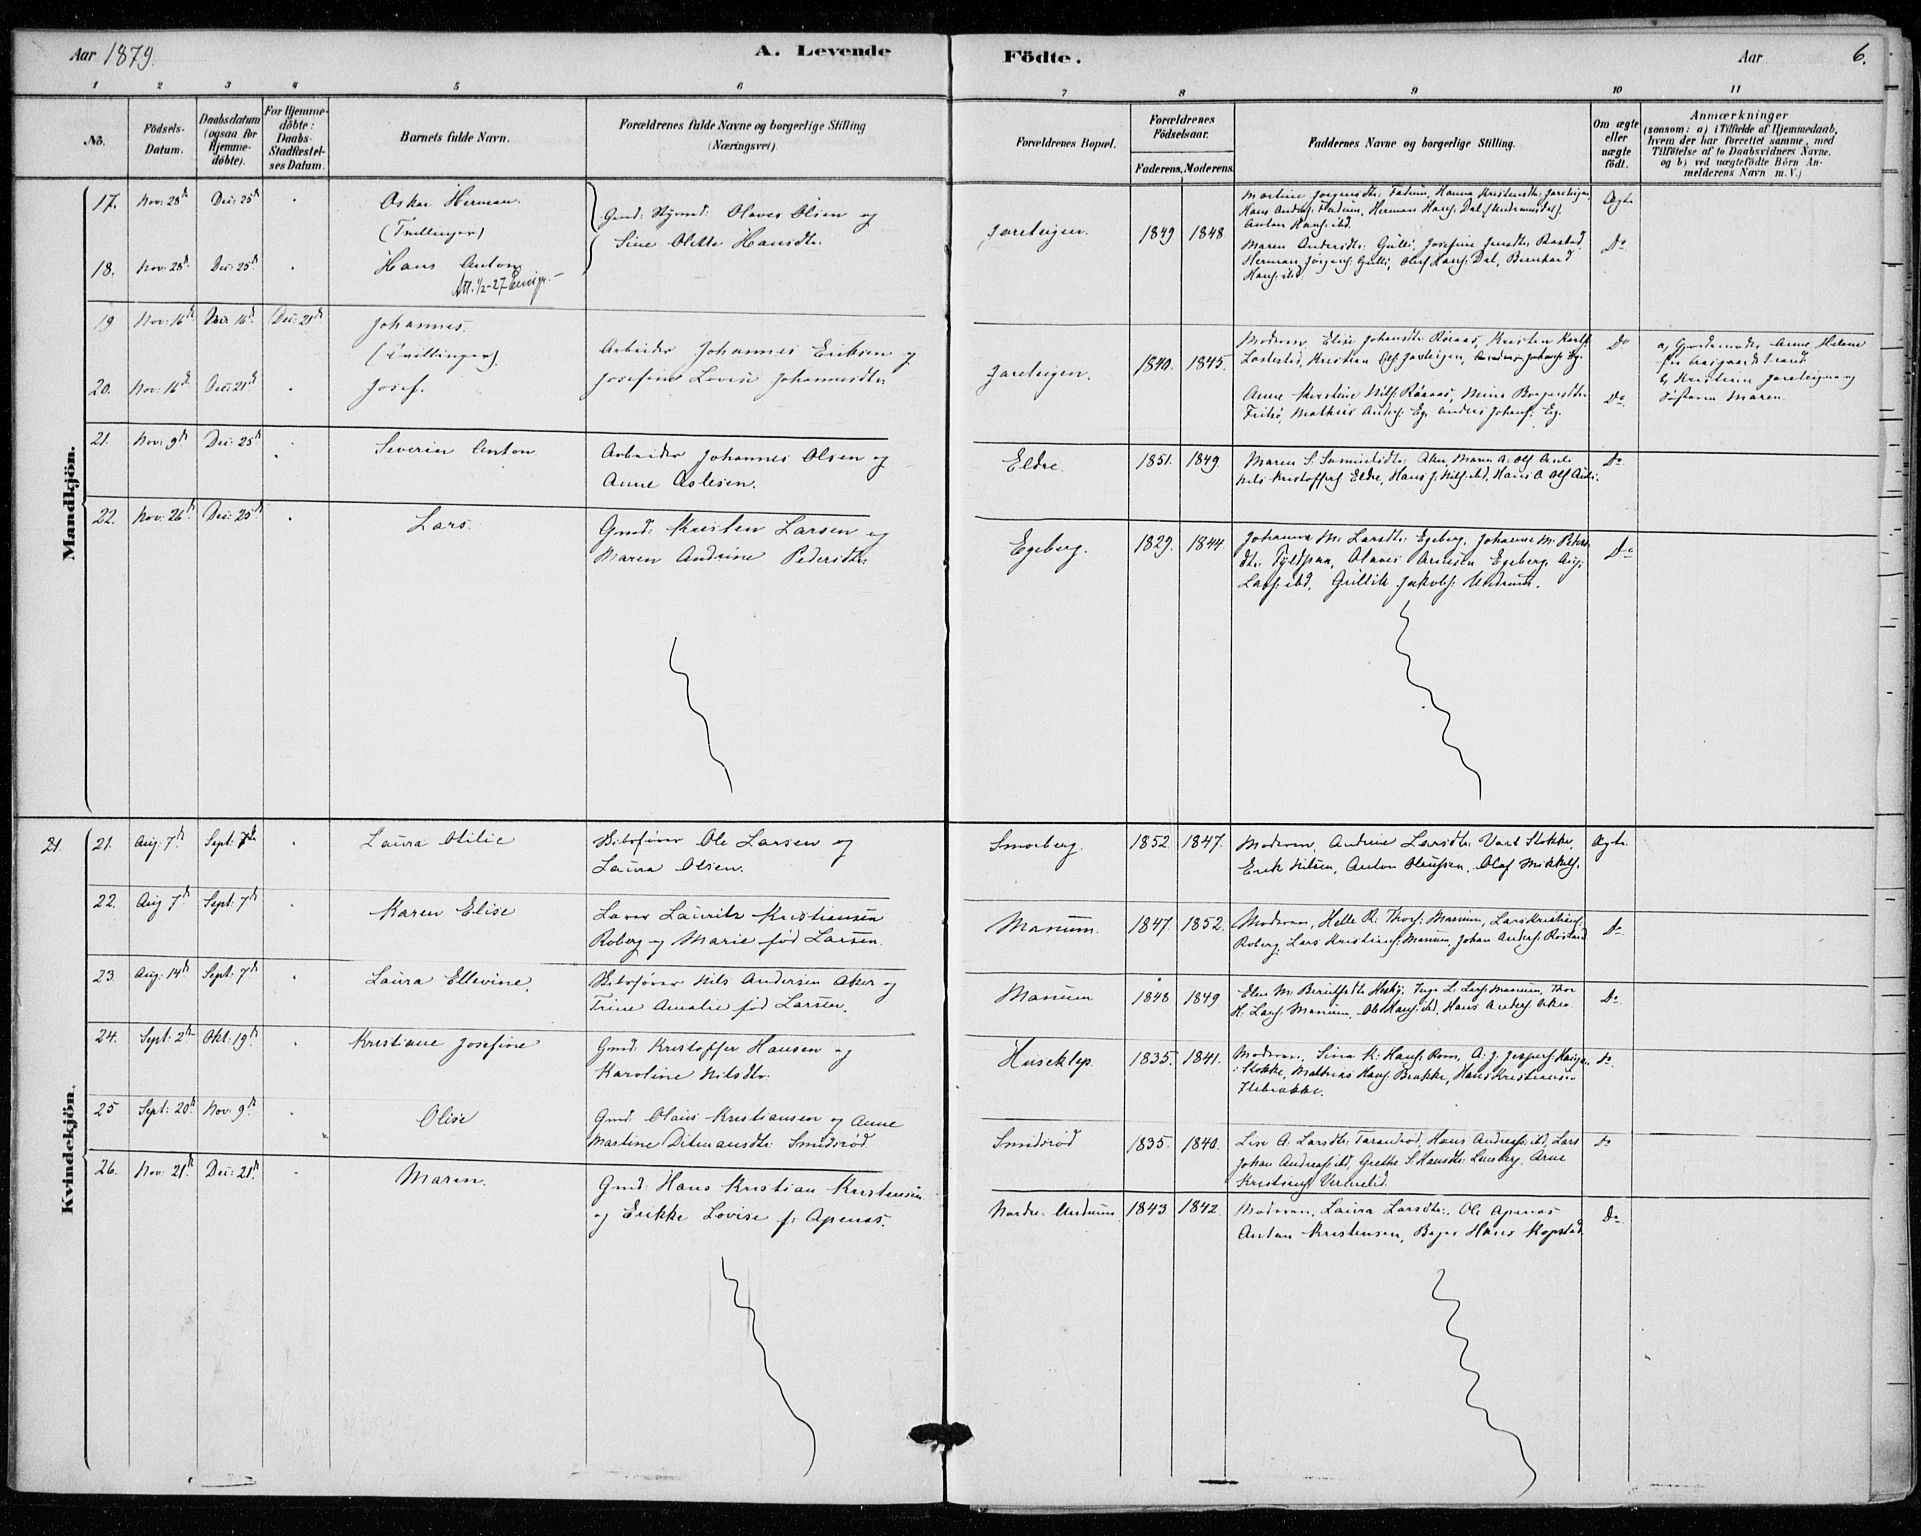 Aar 1879.
A. Levende Födte.
Aar
6.
1 2 3 4 5 6 7 8 9 10 11
No.
Födsels-Datum.
Daabsdatum (ogsaa for Hjemme-döbte).
For Hjemme-döbte: Daabs-Stadfæstel-ses Datum.
Barnets fulde Navn.
Forældrenes fulde Navne og borgerlige Stilling
(Næringsvei).
Forældrenes Bopæl.
Forældrenes Födselsaar.
Faderens. Moderens.
Faddernes Navne og borgerlige Stilling.
Om ægte eller uægte födt.
Anmærkninger
(saasom: a) i Tilfælde af Hjemmedaab,
hvem der har forrettet samme, med
Tilföielse af to Daabsvidners Navne.
og b) ved uægtefödte Börn An-
melderens Navn m. V.)
Mandkjön.
17. Nov: 28d Dec: 25d Oskar Herman.
(Tvillinger)
Gmd: Olaves Olsen og
Sine Olette Hansdtr.
Jareteigen. 1849 1848
Hans Anders: Fadum, Herman Hans: Dal
Anton Hans: ibd.
Ægte
18. Nov: 28d Dec: 25d Hans Anton
Att. 1/2-27
Maren Andersdtr: Gulli, Josefine Bastad
Herman Jörgens: Gulli, Oluf Hans: Dal, Bernhard
Hans: ibd.
Do
19 Nov: 16d Nov 16d Dec: 21d Johannes.
(Tvillinger).
Arbeider Johannes Eriksen og
Josefine Lovise Johannesdtr
Jareteigen. 1840. 1845.
Moderen, Elise Johansdtr Röraas, Kristen
Kristian Jareteigen,
Do
a, Gjordemoder Anne Helene
fra Aasgaardstrand
b, Kristian Jareteigen og
Söstren Maren.
20. Nov: 16d Dec: 21d Josef.
Anne Kirstine Nils: Röraas,
Mathias Anders: Eg. Anders Johans: Eg.
Do
21. Nov: 9d Dec: 25d Severin Anton
Arbeider Johannes Olsen og
Anne Aslesen.
Eldre 1851. 1849.
Maren S. Samuelsdtr: Aker, Maren A. Ols:
Nils Kristoffers: Eldre, Hans J. Nils: ibd, Hans A. Ols:
Do
22. Nov: 26d Dec: 25d Lars.
Gmd: Kristen Larsen og
Maren Andrine Pedersdtr
Egeberg. 1829. 1844
Johanne M. Larsdtr: Egeberg, Johanne M. Peders
dtr. Olaves Arnesen Egeberg, Aug:
Lars: ibd, Gullik Jakobs: Undrum.
Do
Kvindekjön.
21. 21. Aug: 7d Sept: 7d Laura Otilie
Ole Larsen og
Laura Olsen.
Smörberg. 1852 1847.
Moderen, Andrine Larsdtr: Stokke,
Erik Nilsen, Anton Olausen, Olaf Mikkels:
Ægte.
22. Aug 7d Sept: 7d Karen Elise
Laurits Kristiansen
Roberg og Marie föd Larsen.
Manum. 1847. 1852.
Moderen, Helle R. Thors: Manum, Lars Kristians:
Roberg, Lars Kristians: Manum, Johan Anders:
Do
23. Aug: 14d Sept: 7d Laura Ellevine.
Nils Andersen Aker og
Trine Amalie föd Larsen.
Manum 1848 1849
Inge L. Lars: Manum, Thor
H. Lars: Manum, Ole Hans: ibd, Hans Anders: Aker.
Do
24. Sept: 2d Okt: 19d Kristiane Josefine
Gmd: Kristoffer Hansen og
Karoline Nilsdtr.
Huseklep. 1835. 1841.
Moderen, Sina K: Hans: Rom, A. J. Jespers:
Stokke, Mathias Hans: Brekke, Hans Kristiansen
Do.
25 Sept: 20d Nov: 9d Olise
Gmd. Olaus Kristiansen og Anne
Martine Ditmansdtr. Smidsröd
Smidsröd 1835. 1840.
Lise A. Larsdtr: Tarandröd, Hans Andreas: ibd, Lars
Johan Andreas: ibd, Grethe S. Hansdtr: Lensberg, Arne
Kristians:
Do
26. Nov: 21d Dec: 21d. Maren.
Gmd: Hans Kristian Kristensen
og Erikke Lovise f: Apenæs.
Nordre Undrum 1843 1842.
Moderen, Laura Larsdtr: Ole Apenæs
Anton Kristensen, Hans Kopstad
Do